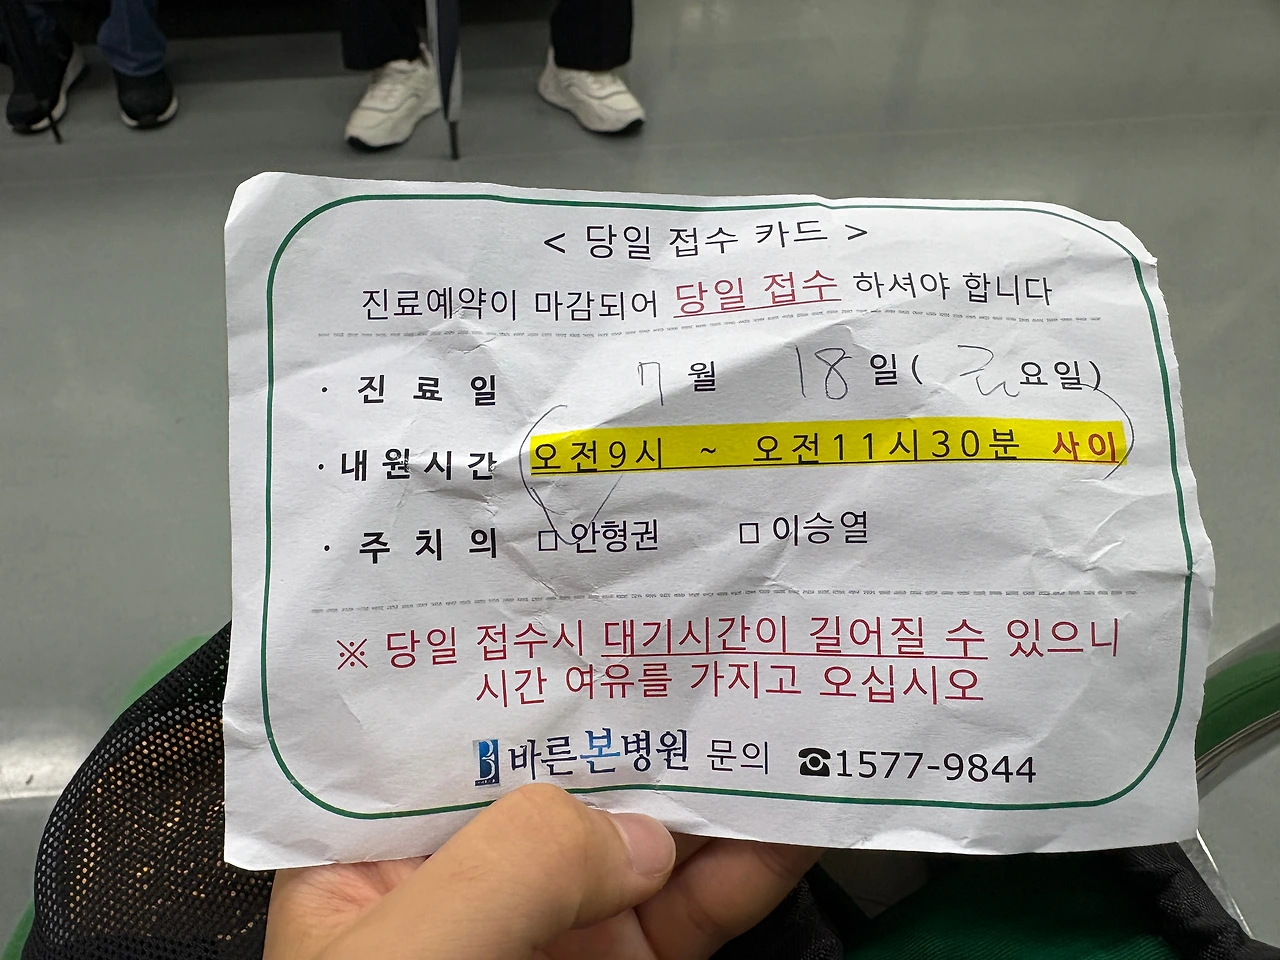 < 당일 접수 카드 >
진료예약이 마감되어 당일 접수 하셔야 합니다
· 진 료 일 7 월 18 일( 금 요일)
· 내 원 시 간 오전9시 ~ 오전11시30분 사이
· 주 치 의 □ 안형권 □ 이승열
※ 당일 접수시 대기시간이 길어질 수 있으니
시간 여유를 가지고 오십시오
바른본병원 문의 ☎1577-9844